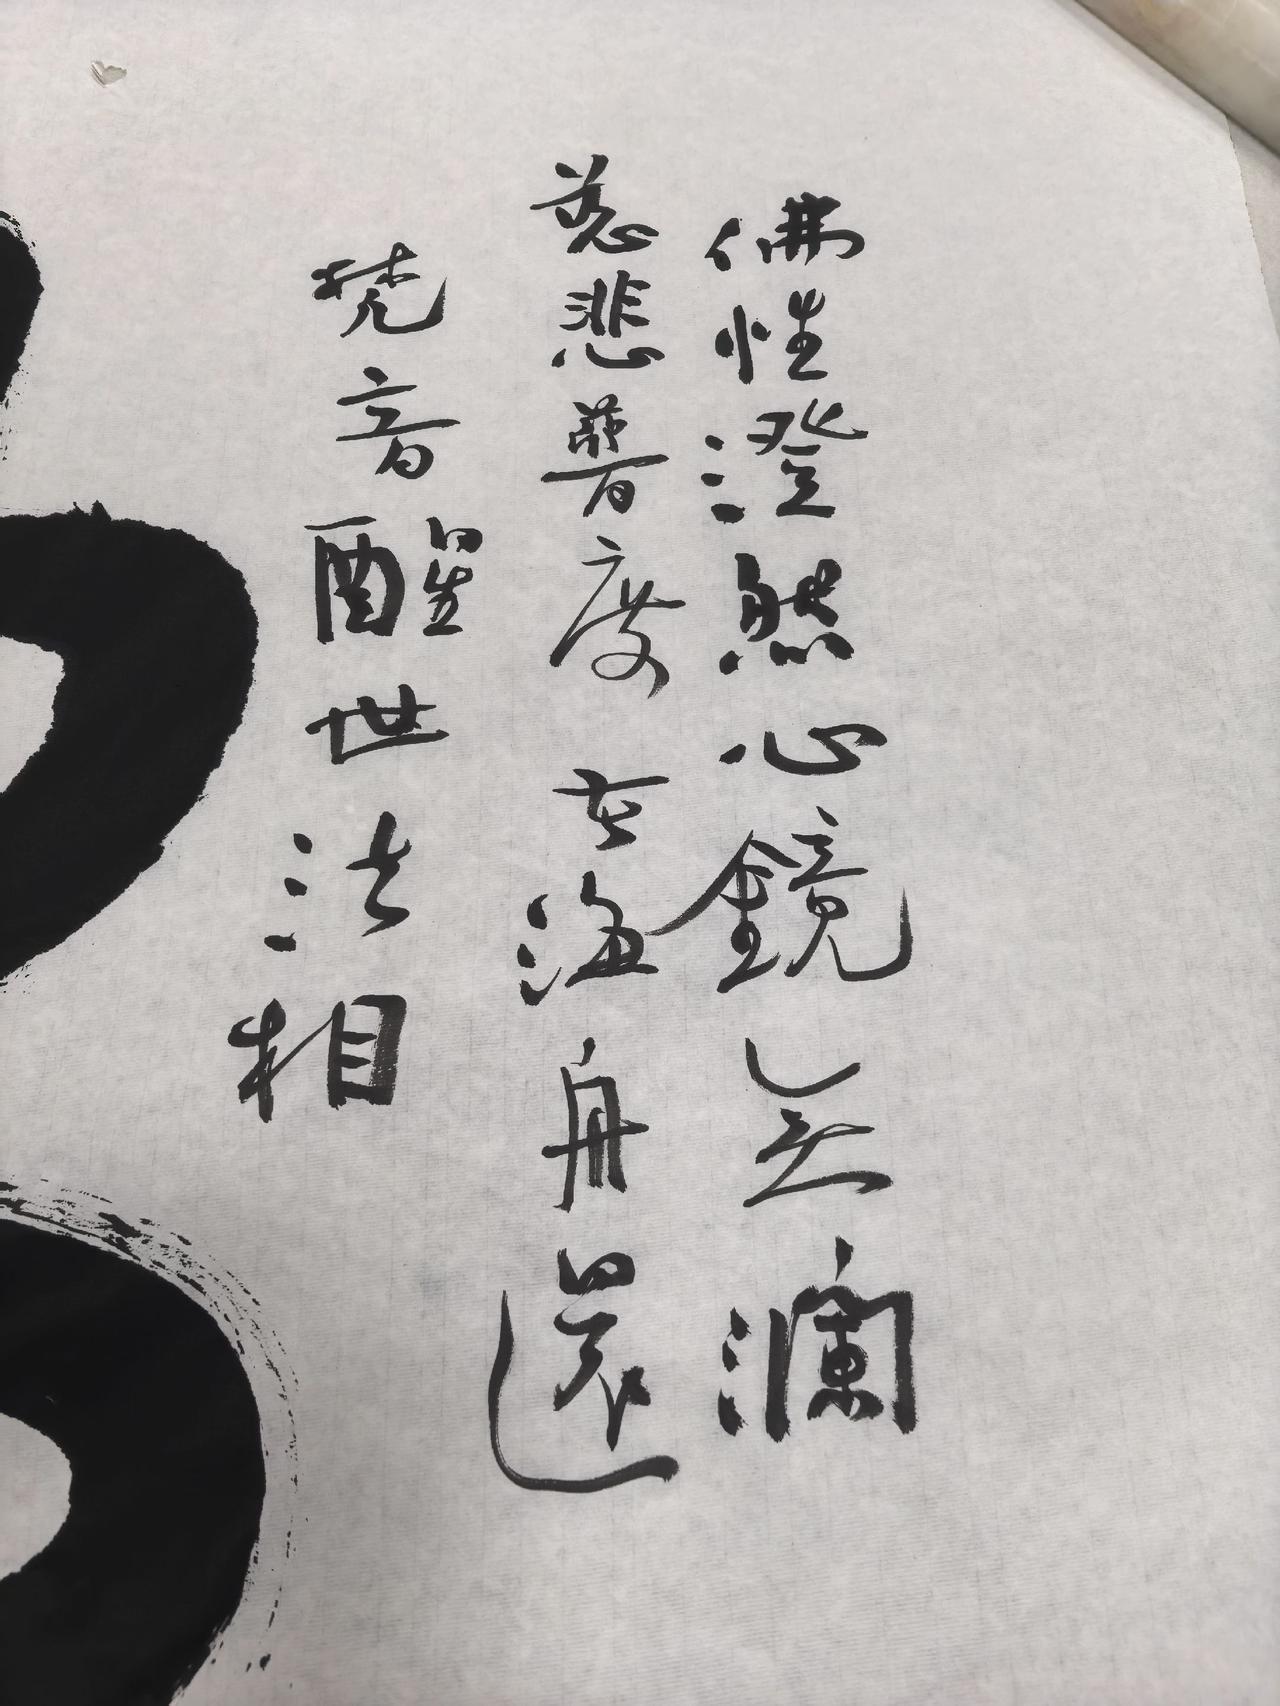 佛性澄然心鏡無瀾
慈悲普度苦海舟還
梵音醒世法相